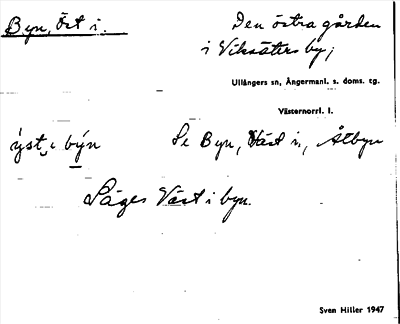 Byn, Öst i.
Den östra gården
i Viksäters by;
Ullångers sn, Ångermanl. s. doms. tg.
Västernorrl. l.
ýst i býn
Se Byn, Väst i, Åtbyn
Säges Väst i byn.
Sven Hiller 1947